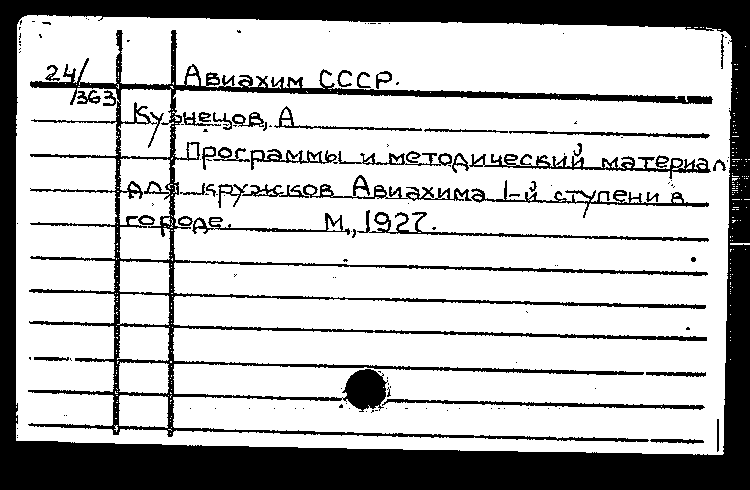 24/363
Авиахим СССР.
Кузнецов, А
Программы и методический материал
для кружков Авиахима 1-й ступени в
городе. М., 1927.